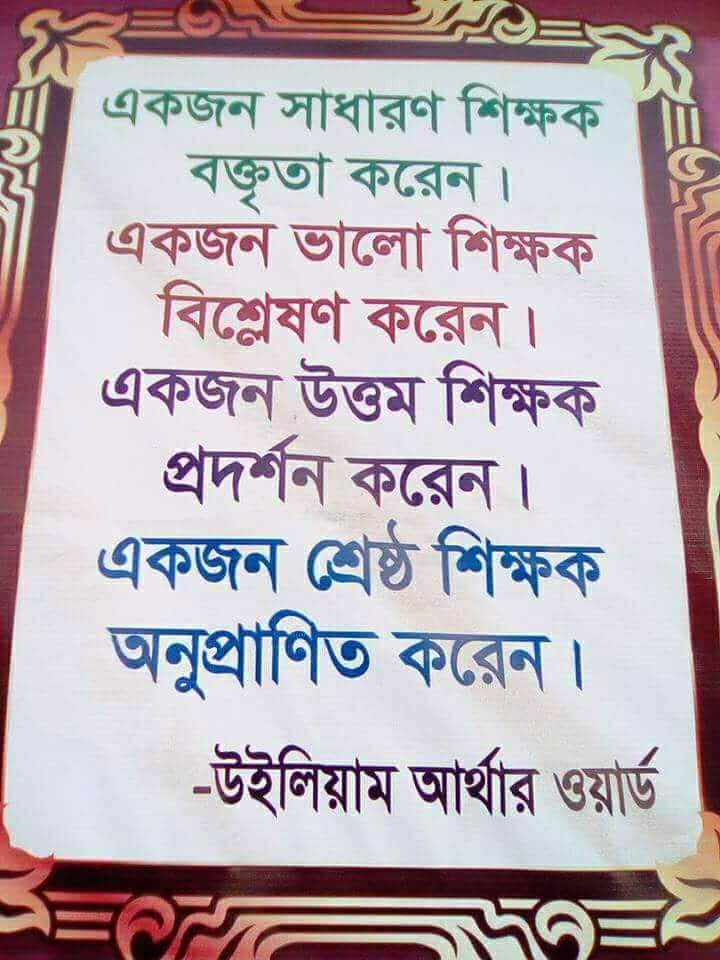 একজন সাধারণ শিক্ষক
বক্তৃতা করেন।
একজন ভালো শিক্ষক
বিশ্লেষণ করেন।
একজন উত্তম শিক্ষক
প্রদর্শন করেন।
একজন শ্রেষ্ঠ শিক্ষক
অনুপ্রাণিত করেন।
-উইলিয়াম আর্থার ওয়ার্ড